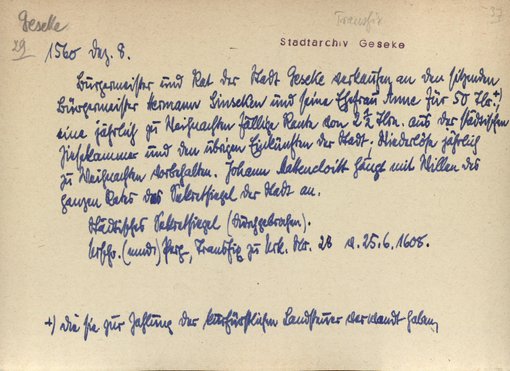 Geseke
29
Transfix
37
Stadtarchiv Geseke
1560 Dez. 8.
Bürgermeister und Rat der Stadt Geseke verkaufen an den sitzenden
Bürgermeister Hermann und seine Ehefrau Anne für 50 Tlr.+)
eine jährlich zu Weihnachten fällige Rente von 2½ Tlrn. aus der städtischen
Zisekammer und den übrigen Einkünften der Stadt. Wiederlöse jährlich
zu Weihnachten vorbehalten. Johann hängt mit Willen des
ganzen Rates das Sekretsiegel der Stadt an.
Städtisches Sekretsiegel (durchgebrochen).
Urschr. (mnd.) Perg., Transfix zu Urk. Nr. 28 v. 25.6.1608.
+) die sie zur Zahlung der kurfürstlichen Landsteuer verwandt haben,